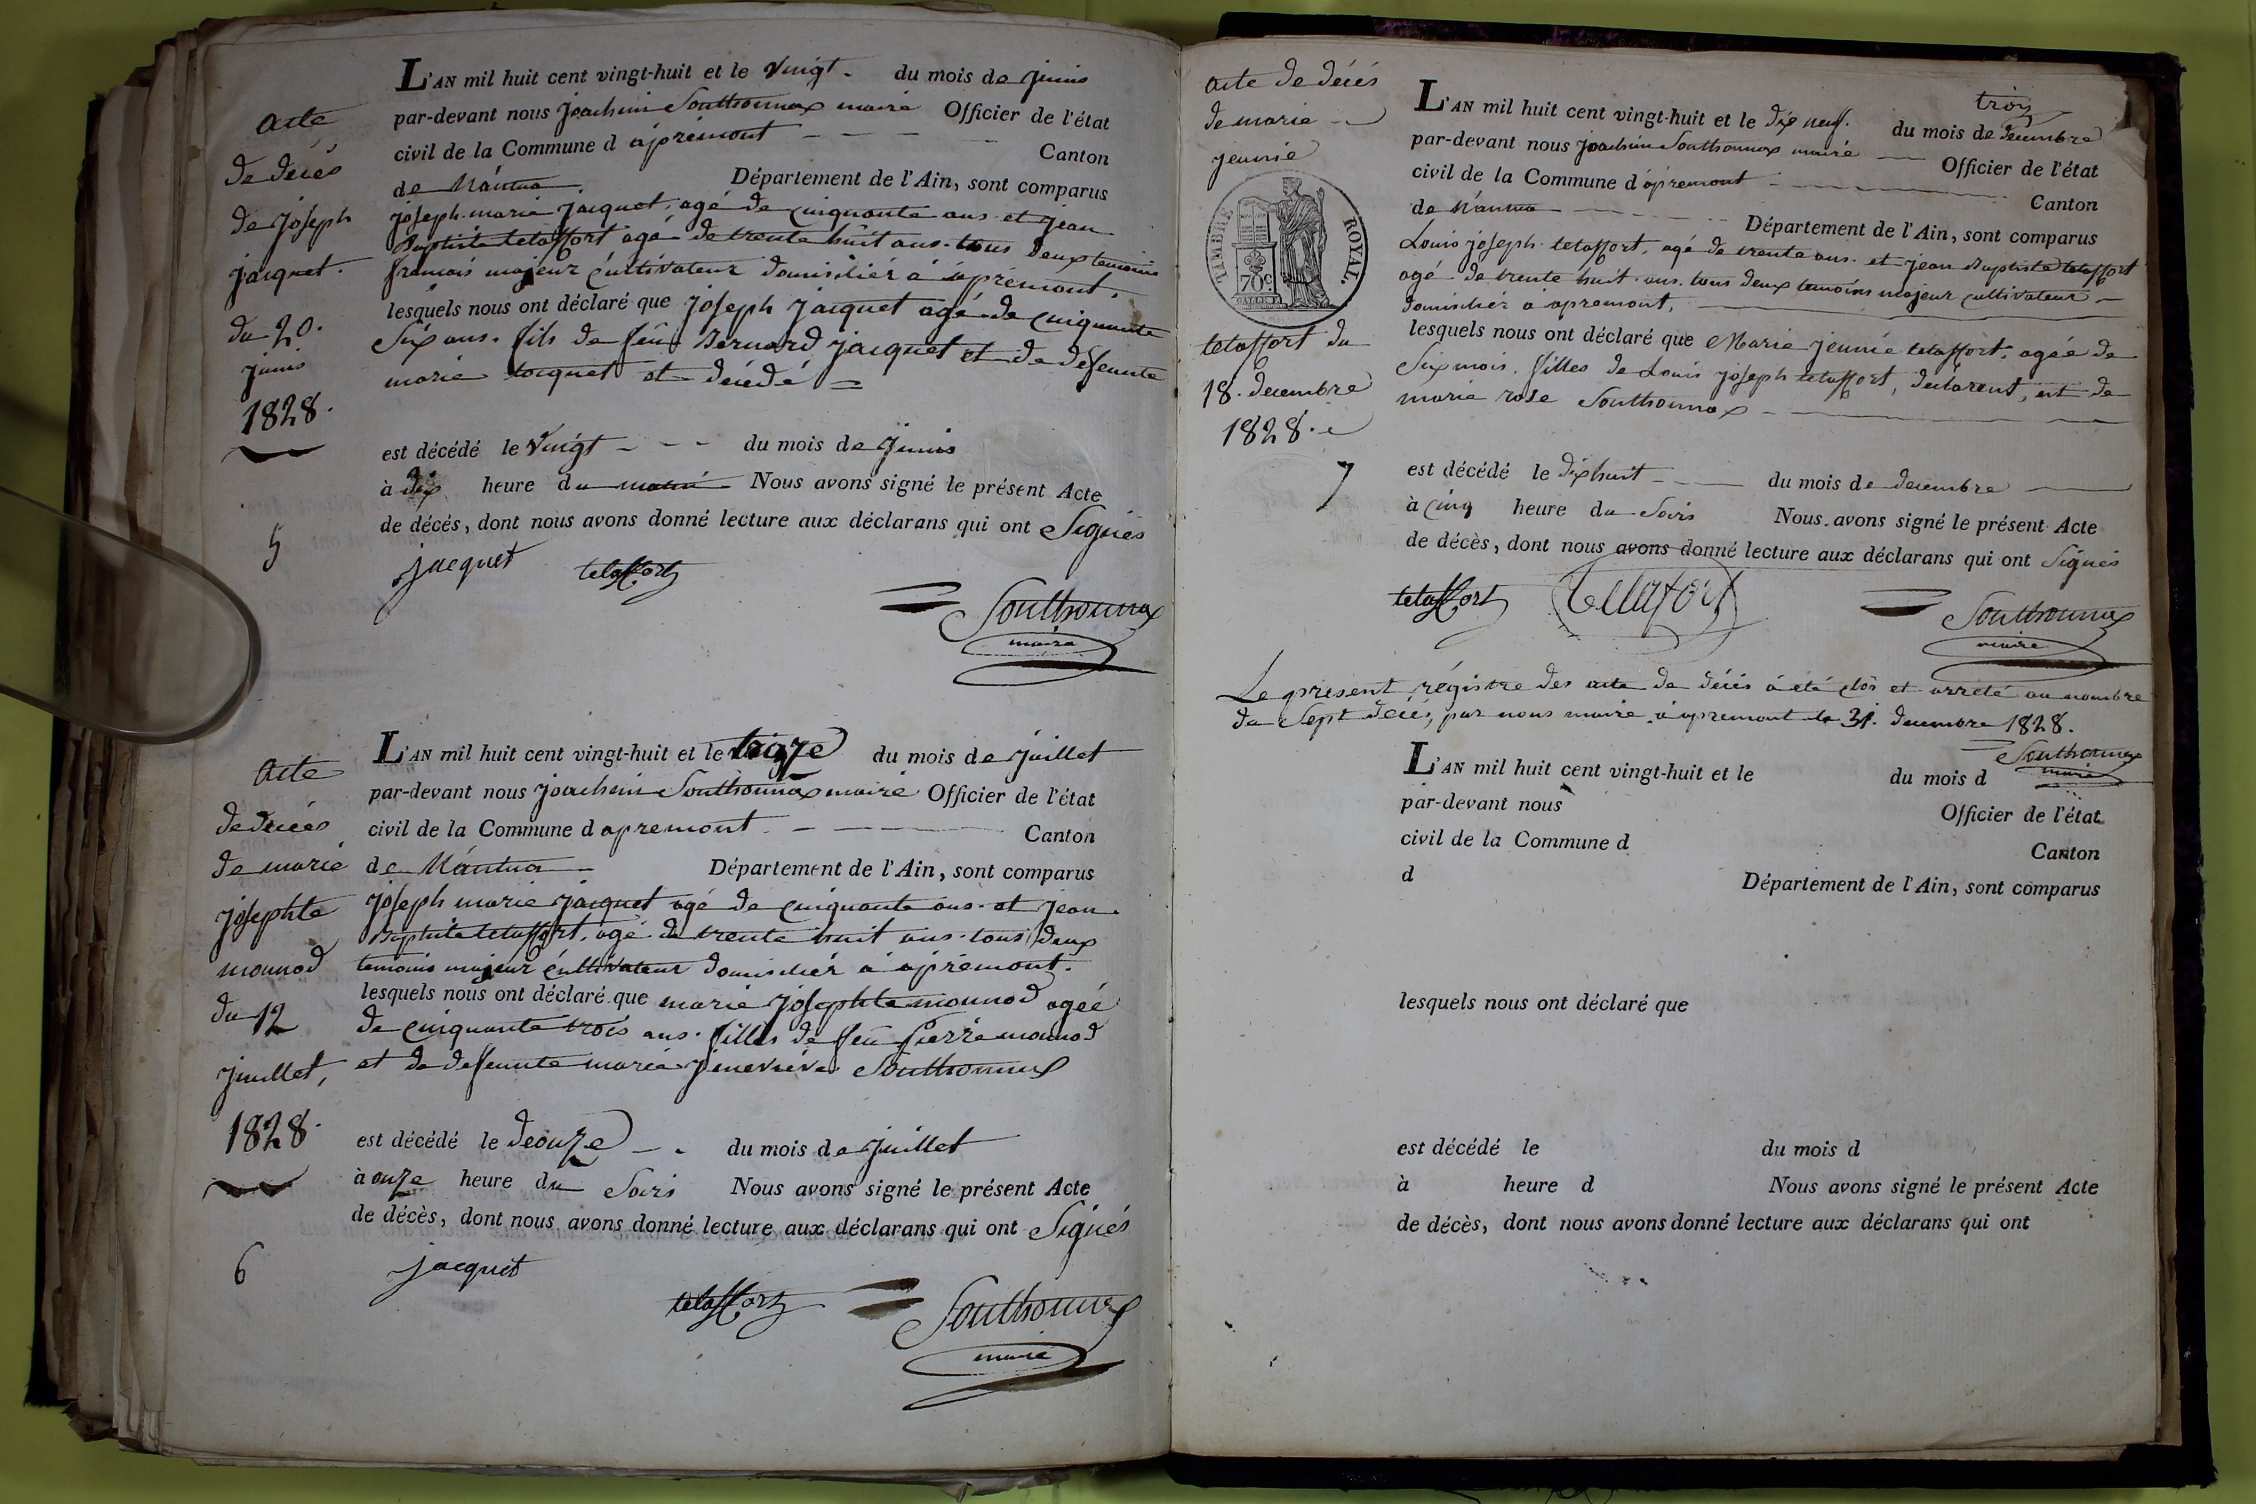 acte
de décés
de joseph
jacquet.
du 20.
juins
1828.
5
L'AN mil huit cent vingt-huit et le vingt. du mois de juins
par-devant nous joachim Southonnax maire Officier de l'état
civil de la Commune d apremont Canton
de Nantua Département de l'Ain, sont comparus
joseph marie jacquet, agé de cinquante ans et jean
Baptiste telaffort agé de trente huit ans. tous deux temoins
francais majeur cultivateur domicilier à apremont.
lesquels nous ont déclaré que joseph jacquet agé de cinquante
six ans. fils de feu Bernard jacquet et de defeunte
marie jocquet et décédé =
est décédé le Vingt du mois de juins
à dix heure du matin Nous avons signé le présent Acte
de décés, dont nous avons donné lecture aux déclarans qui ont Signés
jacquet telaffort
Southonnax
maire
acte
de décés
de marie
josephte
monnod
du 12
juillet,
1828.
6
L'AN mil huit cent vingt-huit et le treize du mois de juillet
par-devant nous joachim Southonnax maire Officier de l'état
civil de la Commune d apremont Canton
de Nantua Département de l'Ain, sont comparus
joseph marie jacquet agé de cinquante ans. et jean
Baptiste telaffort, agé de trente huit ans. tous deux
temoins majeur cultivateur domicilier à apremont.
lesquels nous ont déclaré que marie josephte monnod agée
de cinquante trois ans. filles de feu Pierre monnod
et de defeunte marie jenevieve Southonnax
est décédé le deouze du mois de juillet
à onze heure du Soirs Nous avons signé le présent Acte
de décès, dont nous avons donné lecture aux déclarans qui ont Signés
jacquet
telaffort
Southonnax
maire
acte de décés
de marie
jennie
TIMBRE ROYAL.
70c
telaffort du
18. decembre
1828.
7
troy
L'AN mil huit cent vingt-huit et le dix neuf. du mois de decembre
par-devant nous joachim Southonnax maire Officier de l'état
civil de la Commune d'apremont Canton
de Nantua Département de l'Ain, sont comparus
Louis joseph telaffort, agé de trente ans. et jean Baptiste telaffort
agé de trente huit ans. tous deux temoins majeur cultivateur
domicilier à apremont,
lesquels nous ont déclaré que Marie jennie telaffort, agée de
Six mois. filles de Louis joseph telaffort, declarent, et de
marie rose Southonnax
est décédé le dix huit du mois de decembre
à cinq heure du Soirs Nous avons signé le présent Acte
de décès, dont nous avons donné lecture aux déclarans qui ont Signés
telaffort telaffort
Southonnax
maire
Le present régistre des acte de décés à été clos et arreté au nombre
du Sept décés, par nous maire à apremont le 31. decembre 1828.
Southonnax
maire
L'AN mil huit cent vingt-huit et le du mois d
par-devant nous Officier de l'état
civil de la Commune d Canton
d Département de l'Ain, sont comparus
lesquels nous ont déclaré que
est décédé le du mois d
à heure d Nous avons signé le présent Acte
de décès, dont nous avons donné lecture aux déclarans qui ont